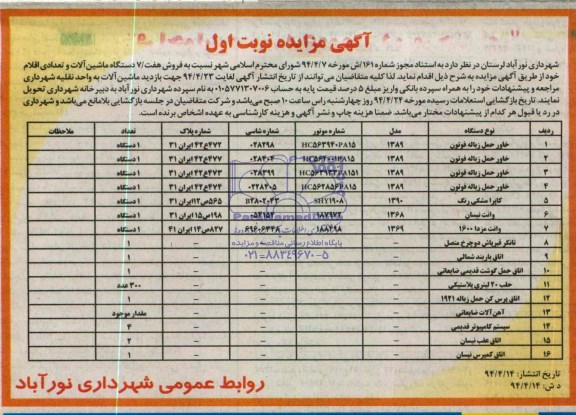 آگهی مزایده نوبت اول
شهرداری نورآباد لرستان در نظر دارد به استناد مجوز شماره ۱۶۱/ش مورخه ۹۴/۴/۷ شورای محترم اسلامی شهر نسبت به فروش هفت/۷ دستگاه ماشین‌آلات و تعدادی اقلام
خود از طریق آگهی مزایده به شرح ذیل اقدام نماید. لذا کلیه متقاضیان می توانند از تاریخ انتشار آگهی لغایت ۹۴/۴/۲۳ جهت بازدید ماشین‌آلات به واحد نقلیه شهرداری
مراجعه و پیشنهادات خود را به همراه سپرده بانکی واریز مبلغ ۵ درصد قیمت پایه به حساب ۰۱۰۵۷۷۱۳۰۷۰۰۶ به نام سپرده شهرداری نورآباد به دبیرخانه شهرداری تحویل
نمایند. تاریخ بازگشایی استعلامات رسیده مورخه ۹۴/۴/۲۴ روز چهارشنبه راس ساعت ۱۰ صبح می‌باشد و شرکت متقاضیان در جلسه بازگشایی بلامانع می‌باشد و شهرداری
در رد یا قبول هر کدام از پیشنهادات مختار می‌باشد. ضمنا هزینه چاپ و نشر آگهی و هزینه کارشناسی به عهده اشخاص برنده است.
ردیف نوع دستگاه مدل شماره موتور شماره شاسی شماره پلاک تعداد ملاحظات
۱ خاور حمل زباله فوتون ۱۳۸۹ HC۵۶۳۹۴۰P۸۱۵ ۰۲۸۴۹۸ ۴۷۲ع۴۲ ایران ۳۱ ۱ دستگاه
۲ خاور حمل زباله فوتون ۱۳۸۹ ۰۲۸۴۰۴ ۴۷۷ع۴۲ ایران ۳۱ ۱ دستگاه
۳ خاور حمل زباله فوتون ۱۳۸۹ ۰۲۸۳۹۹ ۴۷۳ع۴۲ ایران ۳۱ ۱ دستگاه
۴ خاور حمل زباله فوتون ۱۳۸۹ HC۵۶۲۸۵۶P۸۱۵ ۰۲۲۸۴۰۵ ۴۷۴ع۴۲ ایران ۳۱ ۱ دستگاه
۵ کاپرا مشکی رنگ ۱۳۹۰ SHY۱۹۰۸ B۲۸۰۲۰۴۳ ۵۶۵ص۱۲ ایران ۳۱ ۱ دستگاه
۶ وانت نیسان ۱۳۶۸ ۹۸۷۹۷۲ ۰۵۲۱۵۲ ۱۹۸س۱۵ ایران ۳۱ ۱ دستگاه
۷ وانت مزدا ۱۶۰۰ ۱۳۶۹ ۱۸۸۴۹۸ ۶۹۶۰۶۳۴۸ ۸۲۷ص۱۴ ایران ۴۱ ۱ دستگاه
۸ تانکر قیرپاش دوچرخ متصل – – – – ۱
۹ اتاق باربند شمالی – – – – ۱
۱۰ اتاق حمل گوشت قدیمی ضایعاتی – – – – ۱
۱۱ حلب ۲۰ لیتری پلاستیکی – – – – ۳۰۰ عدد
۱۲ اتاق پرس کن حمل زباله ۱۹۲۱ – – – – ۱
۱۳ آهن آلات ضایعاتی – – – – مقدار موجود
۱۴ سیستم کامپیوتر قدیمی – – – – ۴
۱۵ اتاق عقب نیسان – – – – ۲
۱۶ اتاق کمپرس نیسان – – – – ۱
پایگاه اطلاع رسانی مناقصه و مزایده
۰۲۱-۸۸۳۴۹۶۷۰-۵
تاریخ انتشار: ۹۴/۴/۱۴
د ش: ۹۴/۴/۱۴
روابط عمومی شهرداری نورآباد